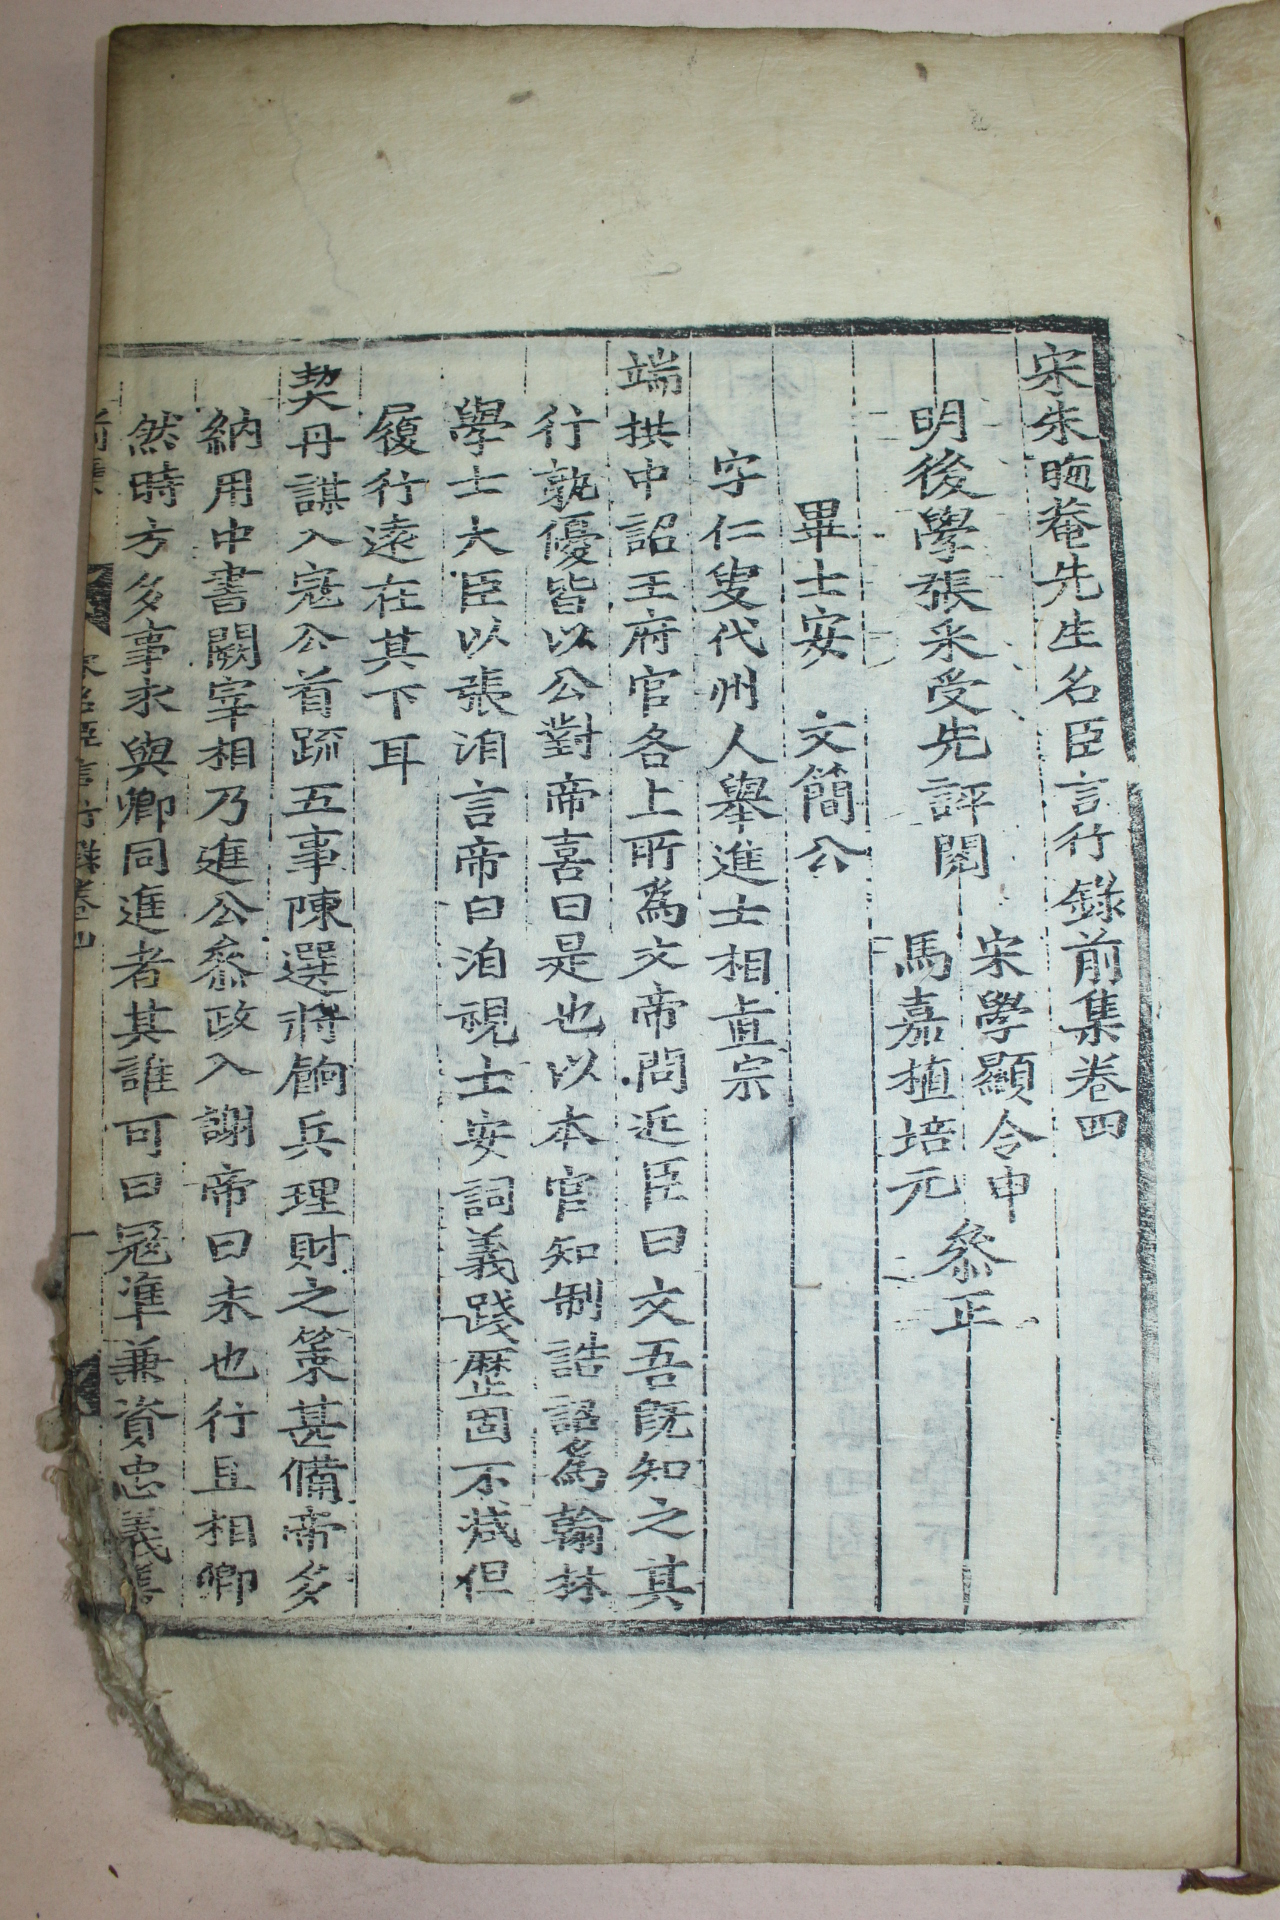 宋朱晦菴先生名臣言行錄前集卷四
明後學張采受先評閱
宋學顯令申
馬嘉植培元
叅正
畢士安 文簡公
字仁叟代州人舉進士相眞宗
端拱中詔王府官各上所爲文帝問近臣曰文吾旣知之其
行孰優皆以公對帝喜曰是也以本官知制誥詔爲翰林
學士大臣以張洎言帝曰洎視士安詞義踐歷固不减但
履行遠在其下耳
契丹謀入寇公首疏五事陳選將餉兵理財之策甚備帝多
納用中書闕宰相乃進公叅政入謝帝曰未也行且相卿
然時方多事求與卿同進者其誰可曰寇準兼資忠義善
前集
宋名臣言行錄卷四
一